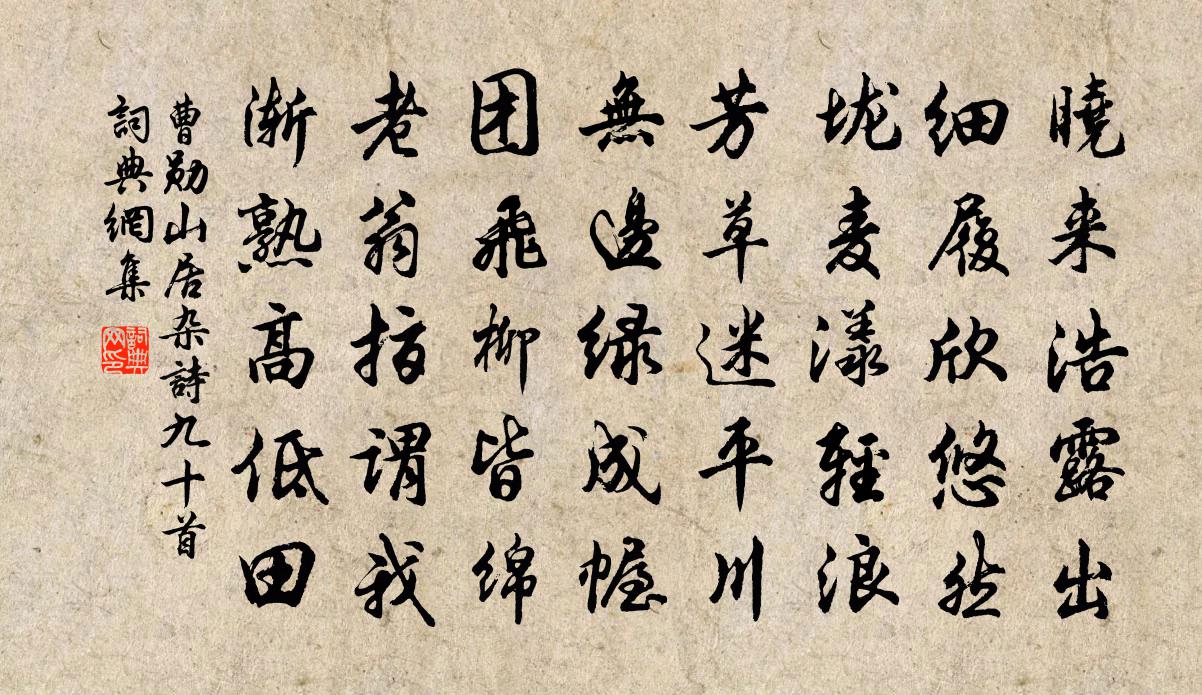 曉来浩露出
细履欣悠然
垅麦漾輕浪
芳草迷平川
無邊绿成幄
团飛柳皆綿
老翁指謂我
渐熟高低田
曹勋山居杂詩九十首
詞典網集
詞典网印